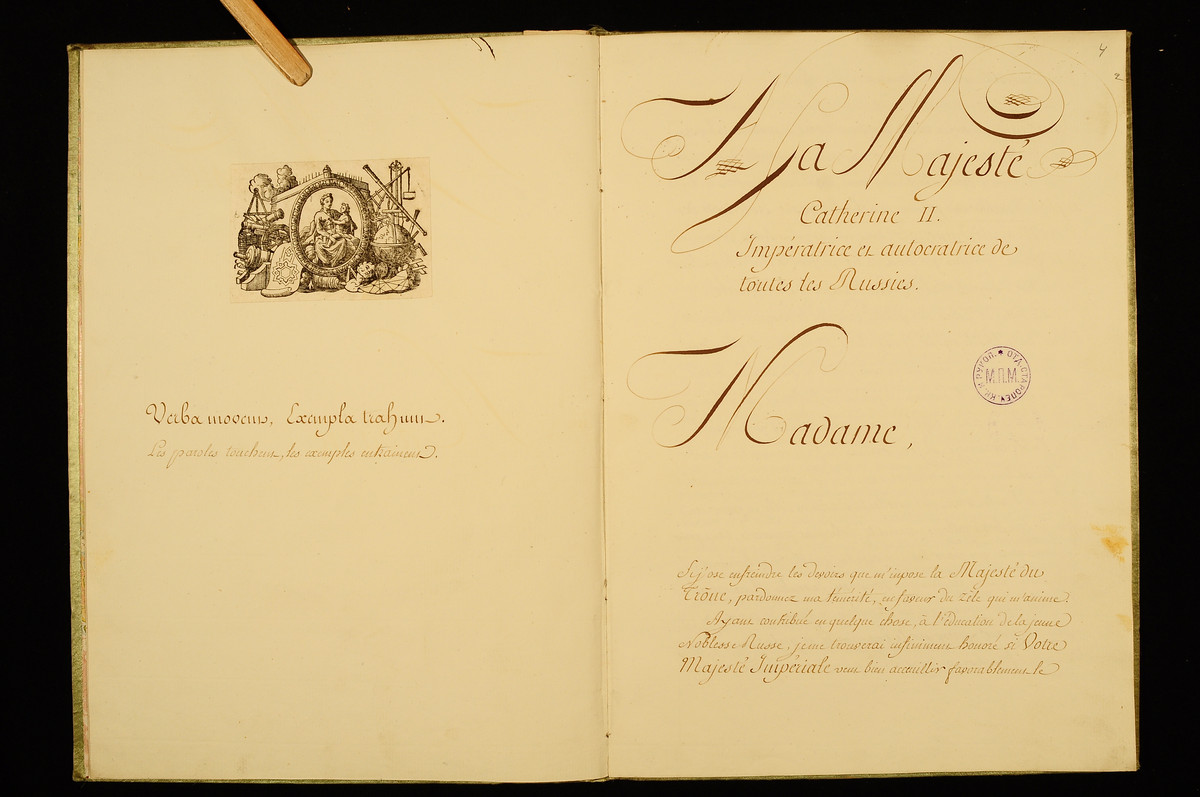 Verba movent, Exempla trahunt.
Les paroles touchent, les exemples entrainent.
4
2
A Sa Majesté
Catherine II.
Impératrice et autocratrice de
toutes les Russies.
ОТД. СТАРОПЕЧ. КН. И РУКОП.
М.П.М.
Madame,
Si j'ose enfreindre les devoirs que m'inpose la Majesté du
Trône, pardonnez ma témérité, en faveur du zèle qui m'anime.
Ayant contribué en quelque chose, à l'éducation de la jeune
Noblesse Russe, je me trouverai infiniment honoré si Votre
Majesté Impériale veut bien accueillir favorablement le